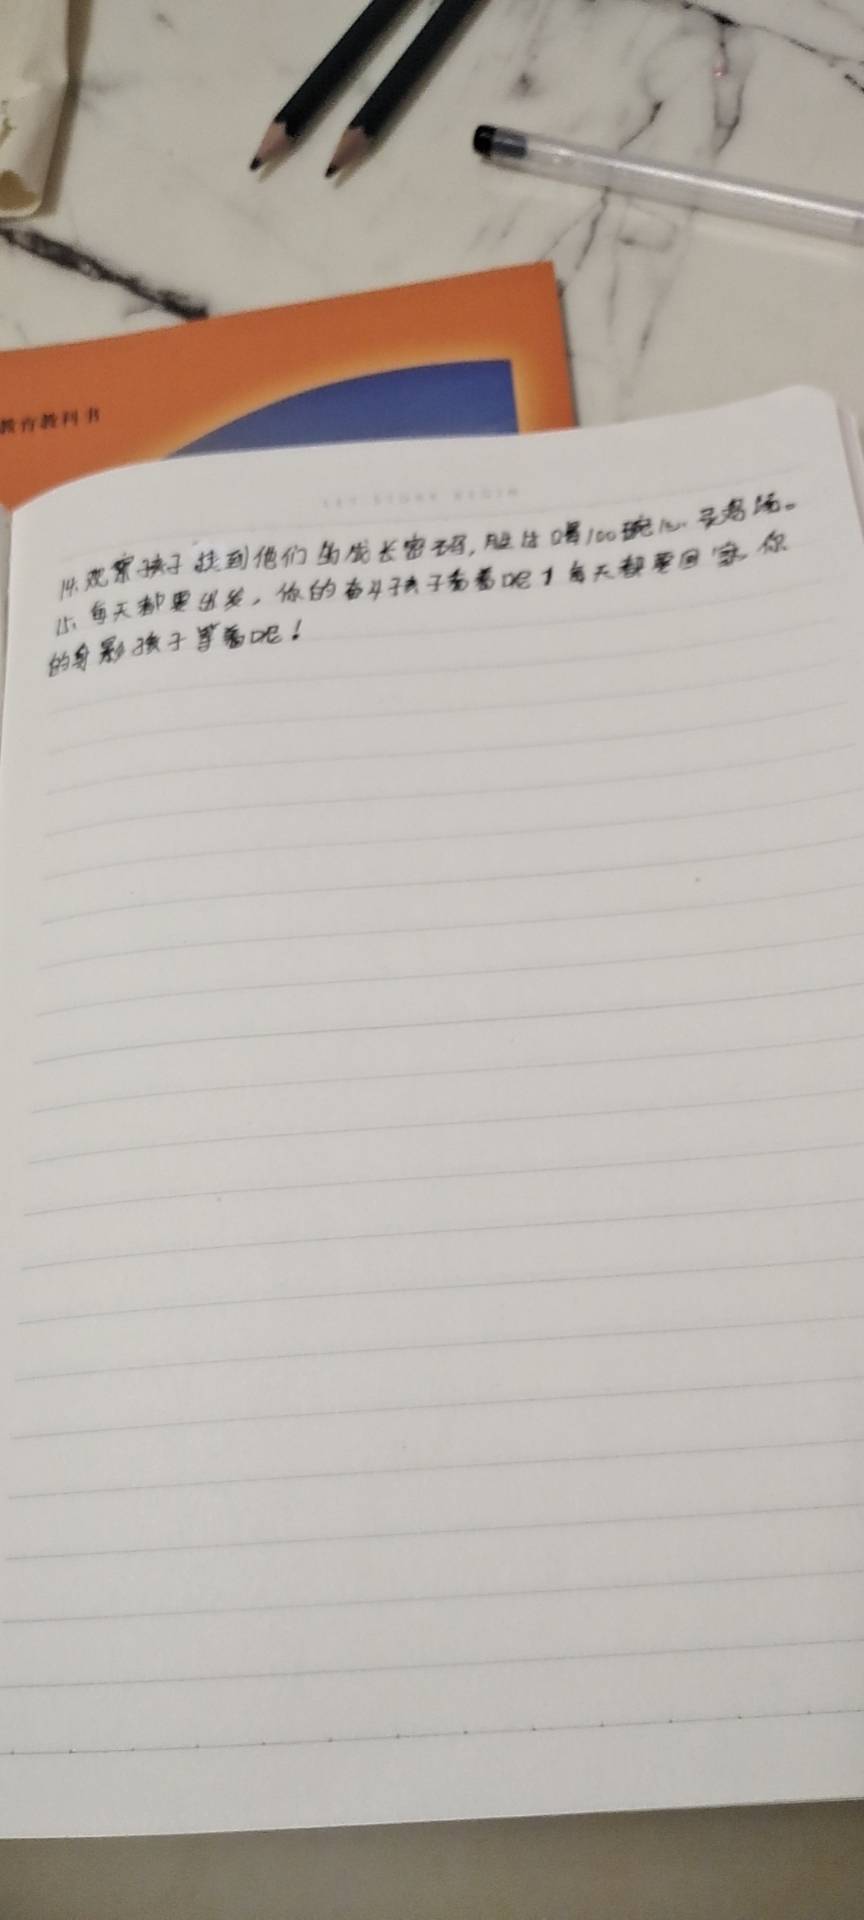 教育教科书
LET STORY BEGIN
14. 观察孩子找到他们的成长密码,胜过喝100碗心灵鸡汤。
15. 每天都要出发,你的奋斗孩子看着呢!每天都要回家,你
的身影孩子等着呢!